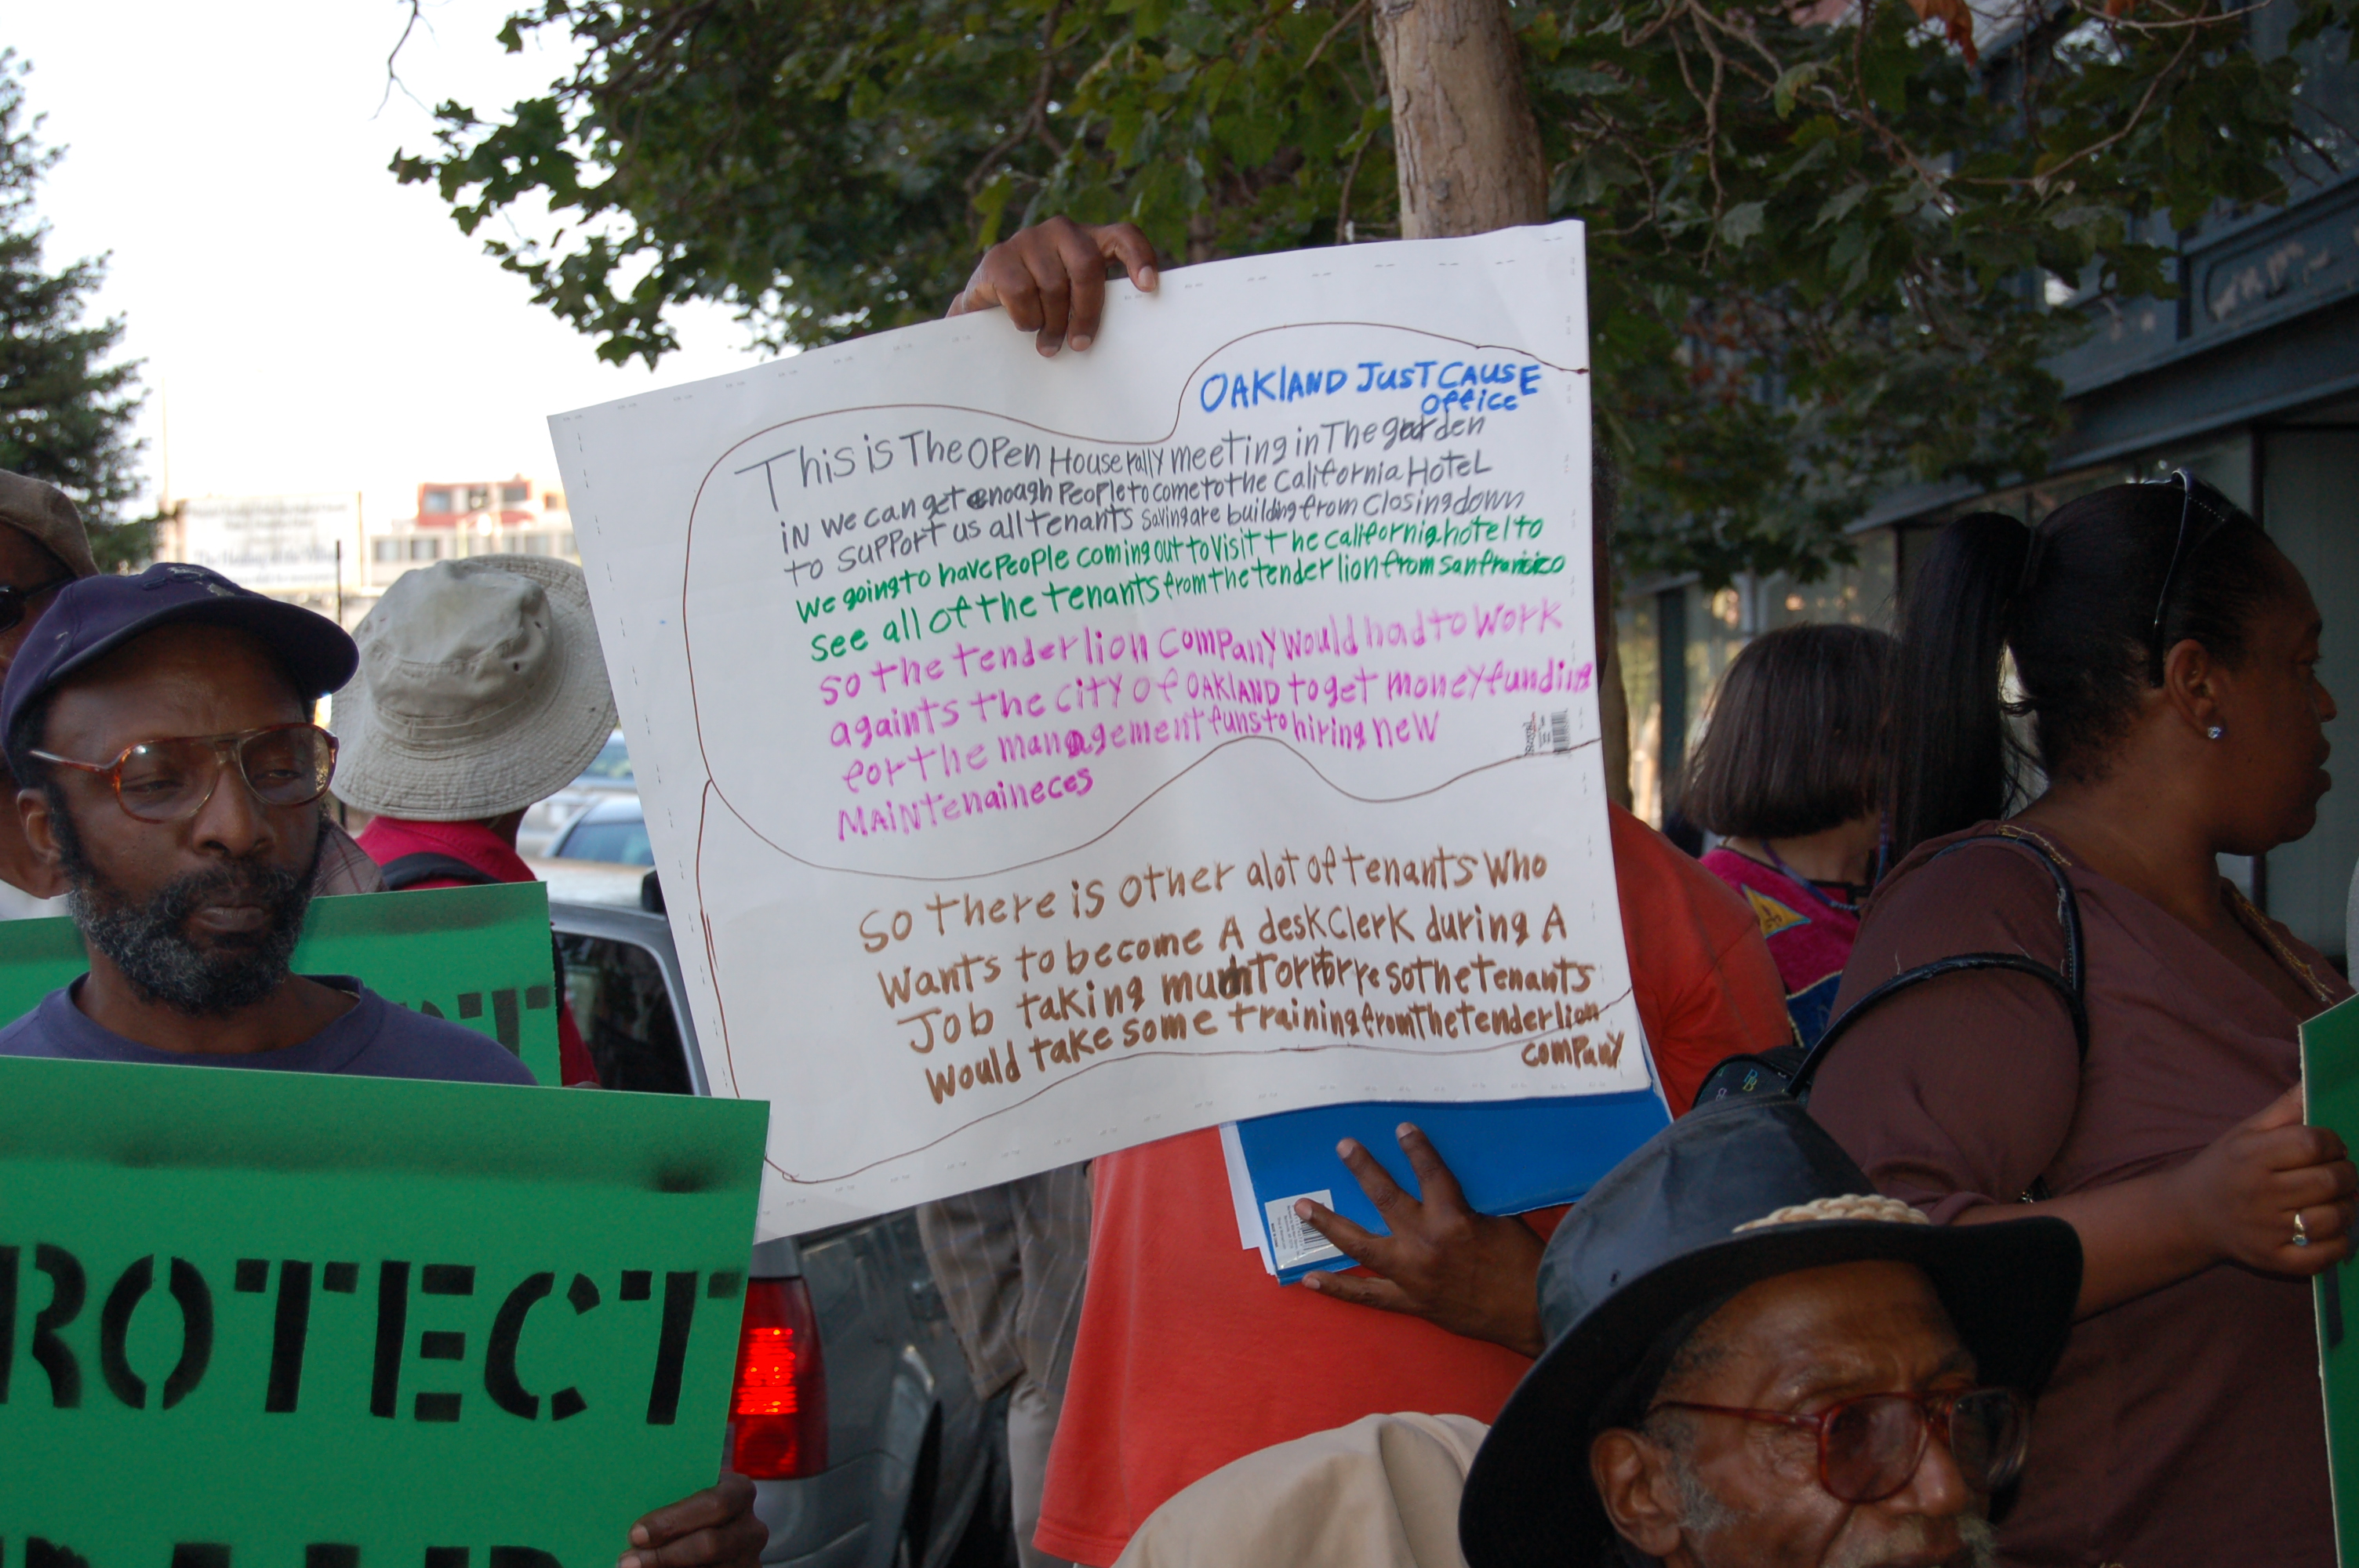 OAKLAND JUST CAUSE
OFFICE
This is The OPen House rally meeting in The garden
in we can get enoagh PeoPle to come to the California Hotel
to support us all tenants saving are building from closing down
we going to have PeoPle coming out to visit the california hotel to
see all of the tenants from the tender lion from san francico
so the tender lion comPany would had to work
againts the city of OAKLAND to get money funding
for the management funs to hiring new
MAiNTenaineces
So there is other alot of tenants who
wants to become A desk Clerk during A
Job taking much so the tenants
would take some training from the tender lion
comPany
ROTECT